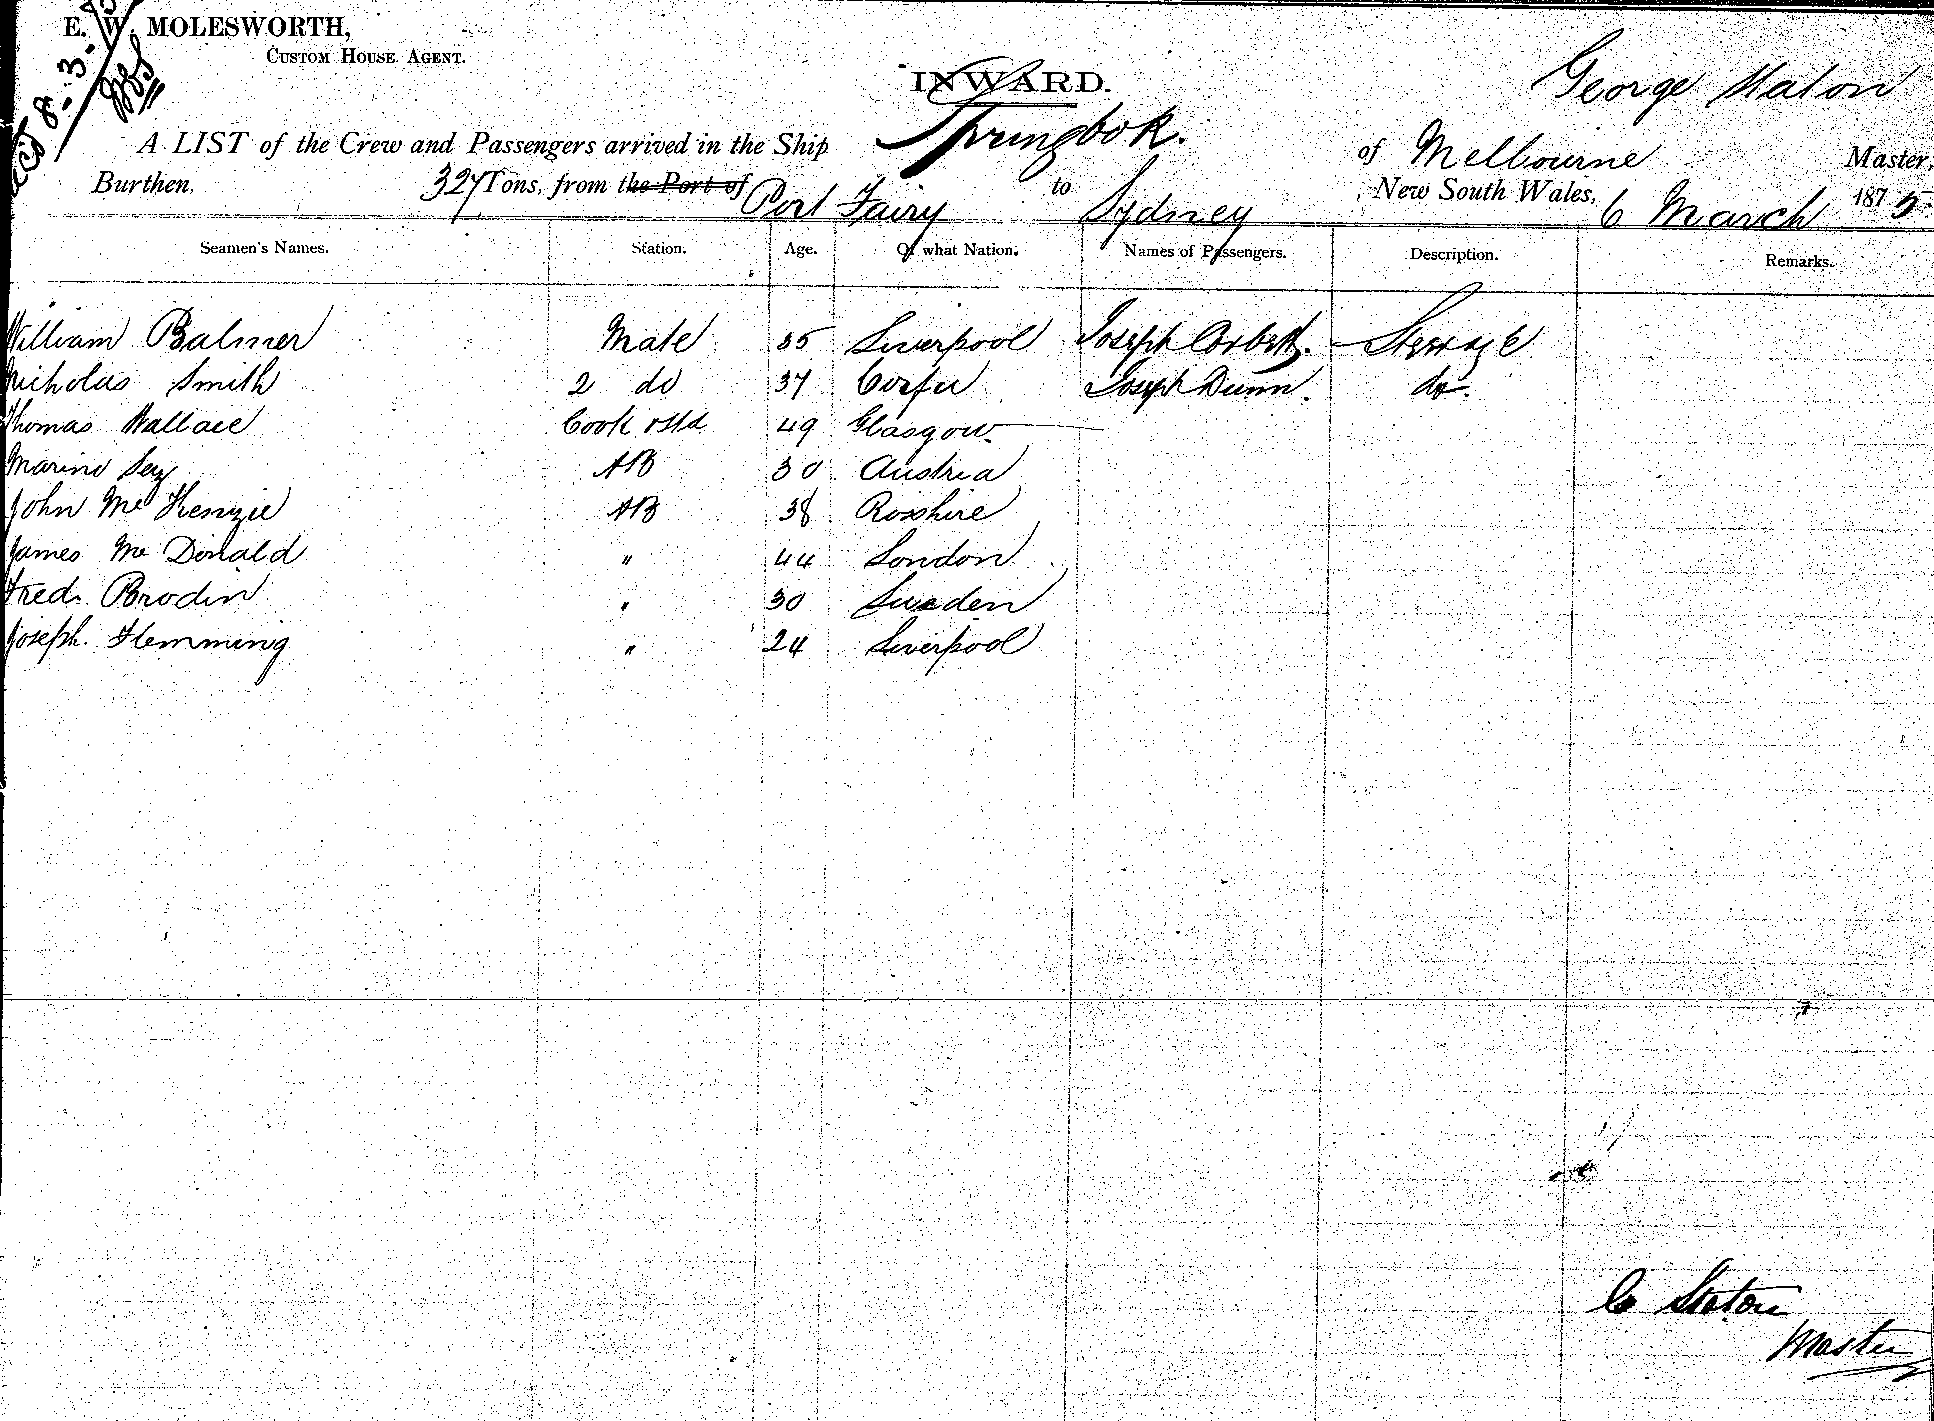 E. W. MOLESWORTH,
CUSTOM HOUSE AGENT.
8.3.
INWARD.
George Staton
A LIST of the Crew and Passengers arrived in the Ship Springbok. of Melbourne Master,
Burthen, 327 Tons, from the Port of Port Fairy to Sydney New South Wales, 6 March 1875
Seamen's Names. Station. Age. Of what Nation. Names of Passengers. Description. Remarks.
William Balmer Mate 35 Liverpool Joseph Corbett. Steerage
Nicholas Smith 2 do 37 Corfu Joseph Dunn. do.
Thomas Wallace Cook & Std 49 Glasgow
Marino 30 Austria AB
John McKenzie AB 38 Rosshire
James McDonald " 44 London
Fred. Brodin " 30 Sweden
Joseph. Flemming " 24 Liverpool
Staton
Master